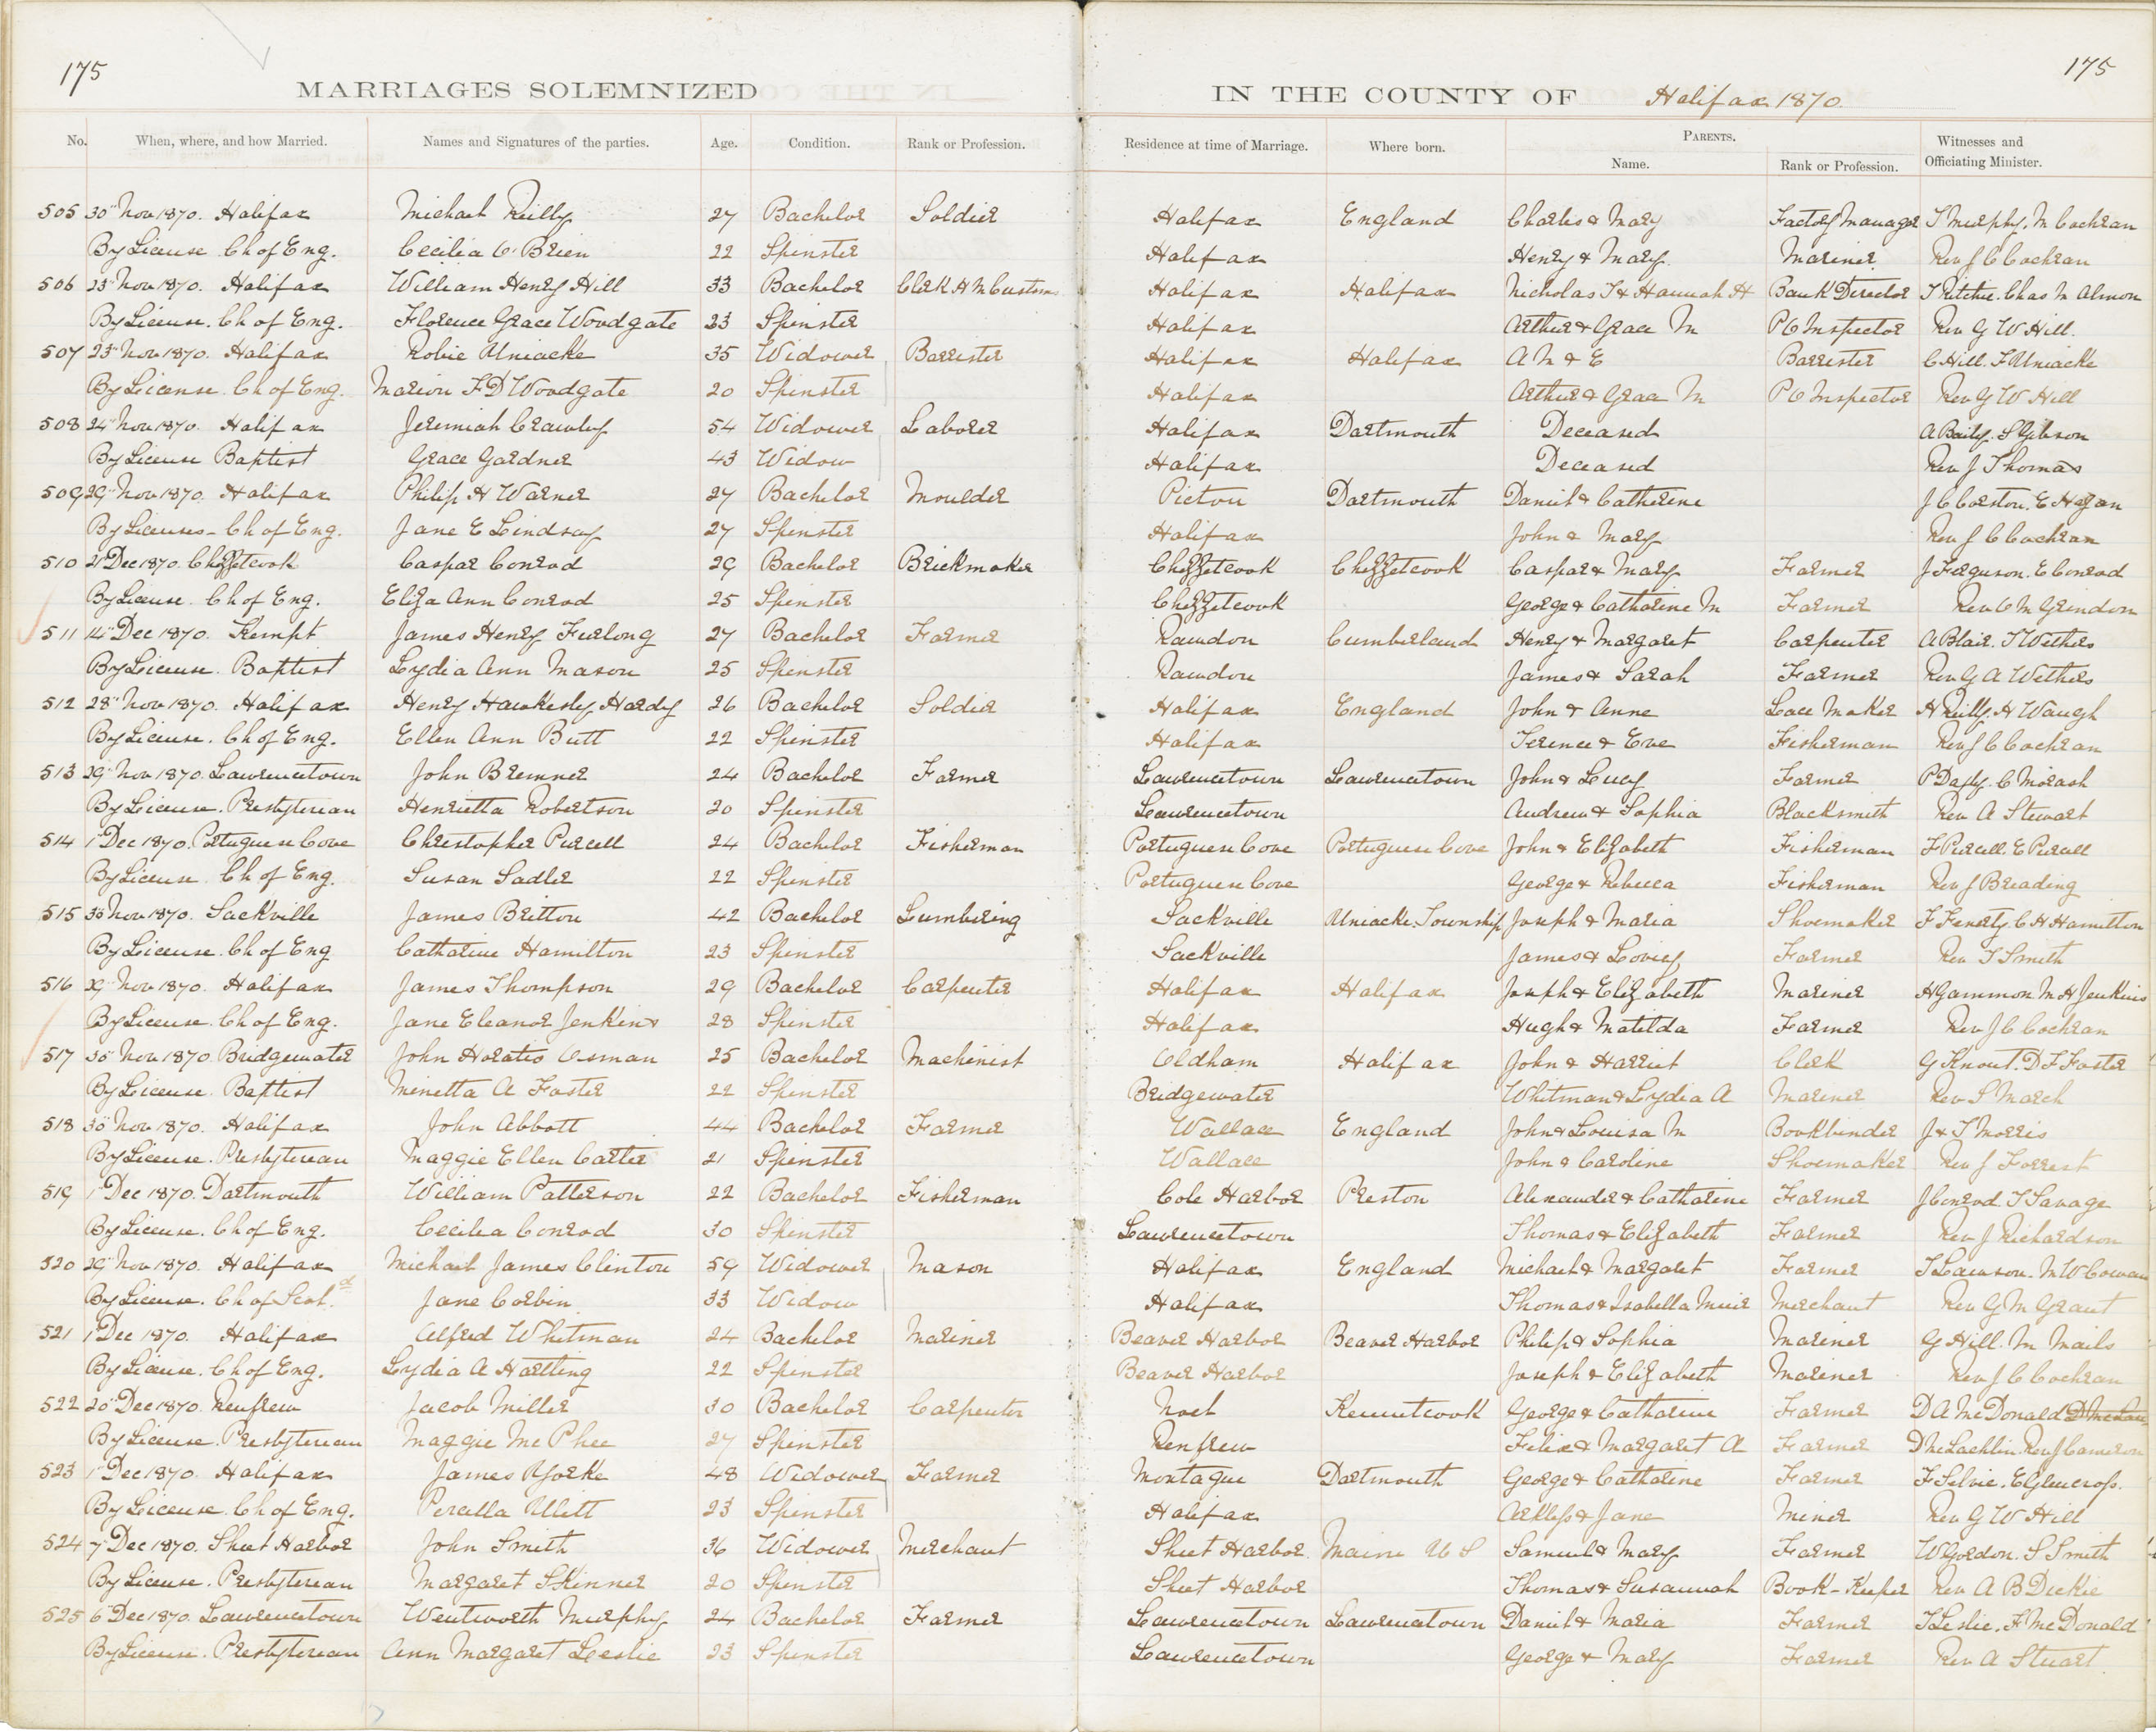 175 175
MARRIAGES SOLEMNIZED IN THE COUNTY OF Halifax 1870.
No. When, where, and how Married. Names and Signatures of the parties. Age. Condition. Rank or Profession. Residence at time of Marriage. Where born. PARENTS. Name. Rank or Profession. Witnesses and Officiating Minister.
505 30" Nov 1870. Halifax Michael Reilly 27 Bachelor Soldier Halifax England Charles & Mary Factory Manager T Murphy. M Cochran
By License Ch of Eng. Cecilia O'Brien 22 Spinster Halifax Henry & Mary Mariner Rev J C Cochran
506 23" Nov 1870. Halifax William Henry Hill 33 Bachelor Clerk H M Customs Halifax Halifax Nicholas T & Hannah H Bank Director T Ritchie. Chas M Almon
By License. Ch of Eng. Florence Grace Woodgate 23 Spinster Halifax Arthur & Grace M PO Inspector Rev G W Hill.
507 23" Nov 1870. Halifax Robie Uniacke 35 Widower Barrister Halifax Halifax A M & E Barrister C Hill. F Uniacke
By License. Ch of Eng. Marion F D Woodgate 20 Spinster Halifax Arthur & Grace M PO Inspector Rev G W Hill
508 24" Nov 1870. Halifax Jeremiah Crawley 54 Widower Laborer Halifax Dartmouth Deceased A Baily. S Gibson
By License Baptist Grace Gardner 43 Widow Halifax Deceased Rev J Thomas
509 29" Nov 1870. Halifax Philip H Warner 27 Bachelor Moulder Pictou Dartmouth Daniel & Catherine J C Corston. E Hagan
By License - Ch of Eng. Jane E Lindsay 27 Spinster Halifax John & Mary Rev J C Cochran
510 21 Dec 1870. Chezzetcook Caspar Conrod 29 Bachelor Brickmaker Chezzetcook Chezzetcook Caspar & Mary Farmer J Ferguson. E Conrod
By License. Ch of Eng. Eliza Ann Conrod 25 Spinster Chezzetcook George & Catharine M Farmer Rev O M Grindon
511 14" Dec 1870. Kempt James Henry Furlong 27 Bachelor Farmer Rawdon Cumberland Henry & Margaret Carpenter A Blair. T Wethers
By License. Baptist Lydia Ann Mason 25 Spinster Rawdon James & Sarah Farmer Rev G A Wethers
512 28" Nov 1870. Halifax Henry Hawkesley Hardy 26 Bachelor Soldier Halifax England John & Anne Lace Maker H Reilly. H Waugh
By License. Ch of Eng. Ellen Ann Butt 22 Spinster Halifax Terence & Eve Fisherman Rev J C Cochran
513 29" Nov 1870. Lawrencetown John Bremner 24 Bachelor Farmer Lawrencetown Lawrencetown John & Lucy Farmer P Dayly. C Morash
By License. Presbyterian Henrietta Robertson 20 Spinster Lawrencetown Andrew & Sophia Blacksmith Rev A Stewart
514 1" Dec 1870. Portuguese Cove Christopher Purcell 24 Bachelor Fisherman Portuguese Cove Portuguese Cove John & Elizabeth Fisherman F Purcell. E Purcell
By License Ch of Eng. Susan Sadler 22 Spinster Portuguese Cove George & Rebecca Fisherman Rev J Breading
515 30" Nov 1870. Sackville James Britton 42 Bachelor Lumbering Sackville Uniacke Township Joseph & Maria Shoemaker F Fenerty. C H Hamilton
By License. Ch of Eng Catharine Hamilton 23 Spinster Sackville James & Lovicy Farmer Rev T Smith
516 29" Nov 1870. Halifax James Thompson 29 Bachelor Carpenter Halifax Halifax Joseph & Elizabeth Mariner H Gammon M H Jenkins
By License. Ch of Eng. Jane Eleanor Jenkins 28 Spinster Halifax Hugh & Matilda Farmer Rev J C Cochran
517 30" Nov 1870 Bridgewater John Horatio Osman 25 Bachelor Machinist Oldham Halifax John & Harriet Clerk G Knout. D F Foster
By License. Baptist Minetta A Foster 22 Spinster Bridgewater Whitman & Lydia A Mariner Rev S March
518 30" Nov 1870. Halifax John Abbott 44 Bachelor Farmer Wallace England John & Louisa M Bookbinder J & T Morris
By License. Presbyterian Maggie Ellen Carter 21 Spinster Wallace John & Caroline Shoemaker Rev J Forrest
519 1" Dec 1870. Dartmouth William Patterson 22 Bachelor Fisherman Cole Harbor Preston Alexander & Catharine Farmer J Conrod T Savage
By License. Ch of Eng. Cecilia Conrod 30 Spinster Lawrencetown Thomas & Elizabeth Farmer Rev J Richardson
520 29" Nov 1870. Halifax Michael James Clinton 59 Widower Mason Halifax England Michael & Margaret Farmer T Lawson. M W Cowan
By License. Ch of Scotd. Jane Corbin 33 Widow Halifax Thomas & Isabella Muir Merchant Rev G M Grant
521 1" Dec 1870. Halifax Alfred Whitman 24 Bachelor Mariner Beaver Harbor Beaver Harbor Philip & Sophia Mariner G Hill. M Mails
By License. Ch of Eng. Lydia A Hartling 22 Spinster Beaver Harbor Joseph & Elizabeth Mariner Rev J C Cochran
522 20" Dec 1870. Renfrew Jacob Miller 30 Bachelor Carpenter Noel Kennetcook George & Catharine Farmer D A McDonald D McLau
By License. Presbyterian Maggie McPhee 27 Spinster Renfrew Felix & Margaret A Farmer D McLachlin. Rev J Cameron
523 1" Dec 1870. Halifax James Yorke 48 Widower Farmer Montague Dartmouth George & Catharine Farmer F Silvie. E Glencross.
By License. Ch of Eng. Percilla Ullitt 23 Spinster Halifax Arkless & Jane Miner Rev G W Hill
524 7" Dec 1870. Sheet Harbor John Smith 36 Widower Merchant Sheet Harbor Maine U S Samuel & Mary Farmer W Gordon. S Smith
By License. Presbyterian Margaret Skinner 20 Spinster Sheet Harbor Thomas & Susannah Book-Keeper Rev A B Dickie
525 6" Dec 1870. Lawrencetown Wentworth Murphy 24 Bachelor Farmer Lawrencetown Lawrencetown Daniel & Maria Farmer T Leslie. A McDonald
By License. Presbyterian Ann Margaret Leslie 23 Spinster Lawrencetown George & Mary Farmer Rev A Stuart.